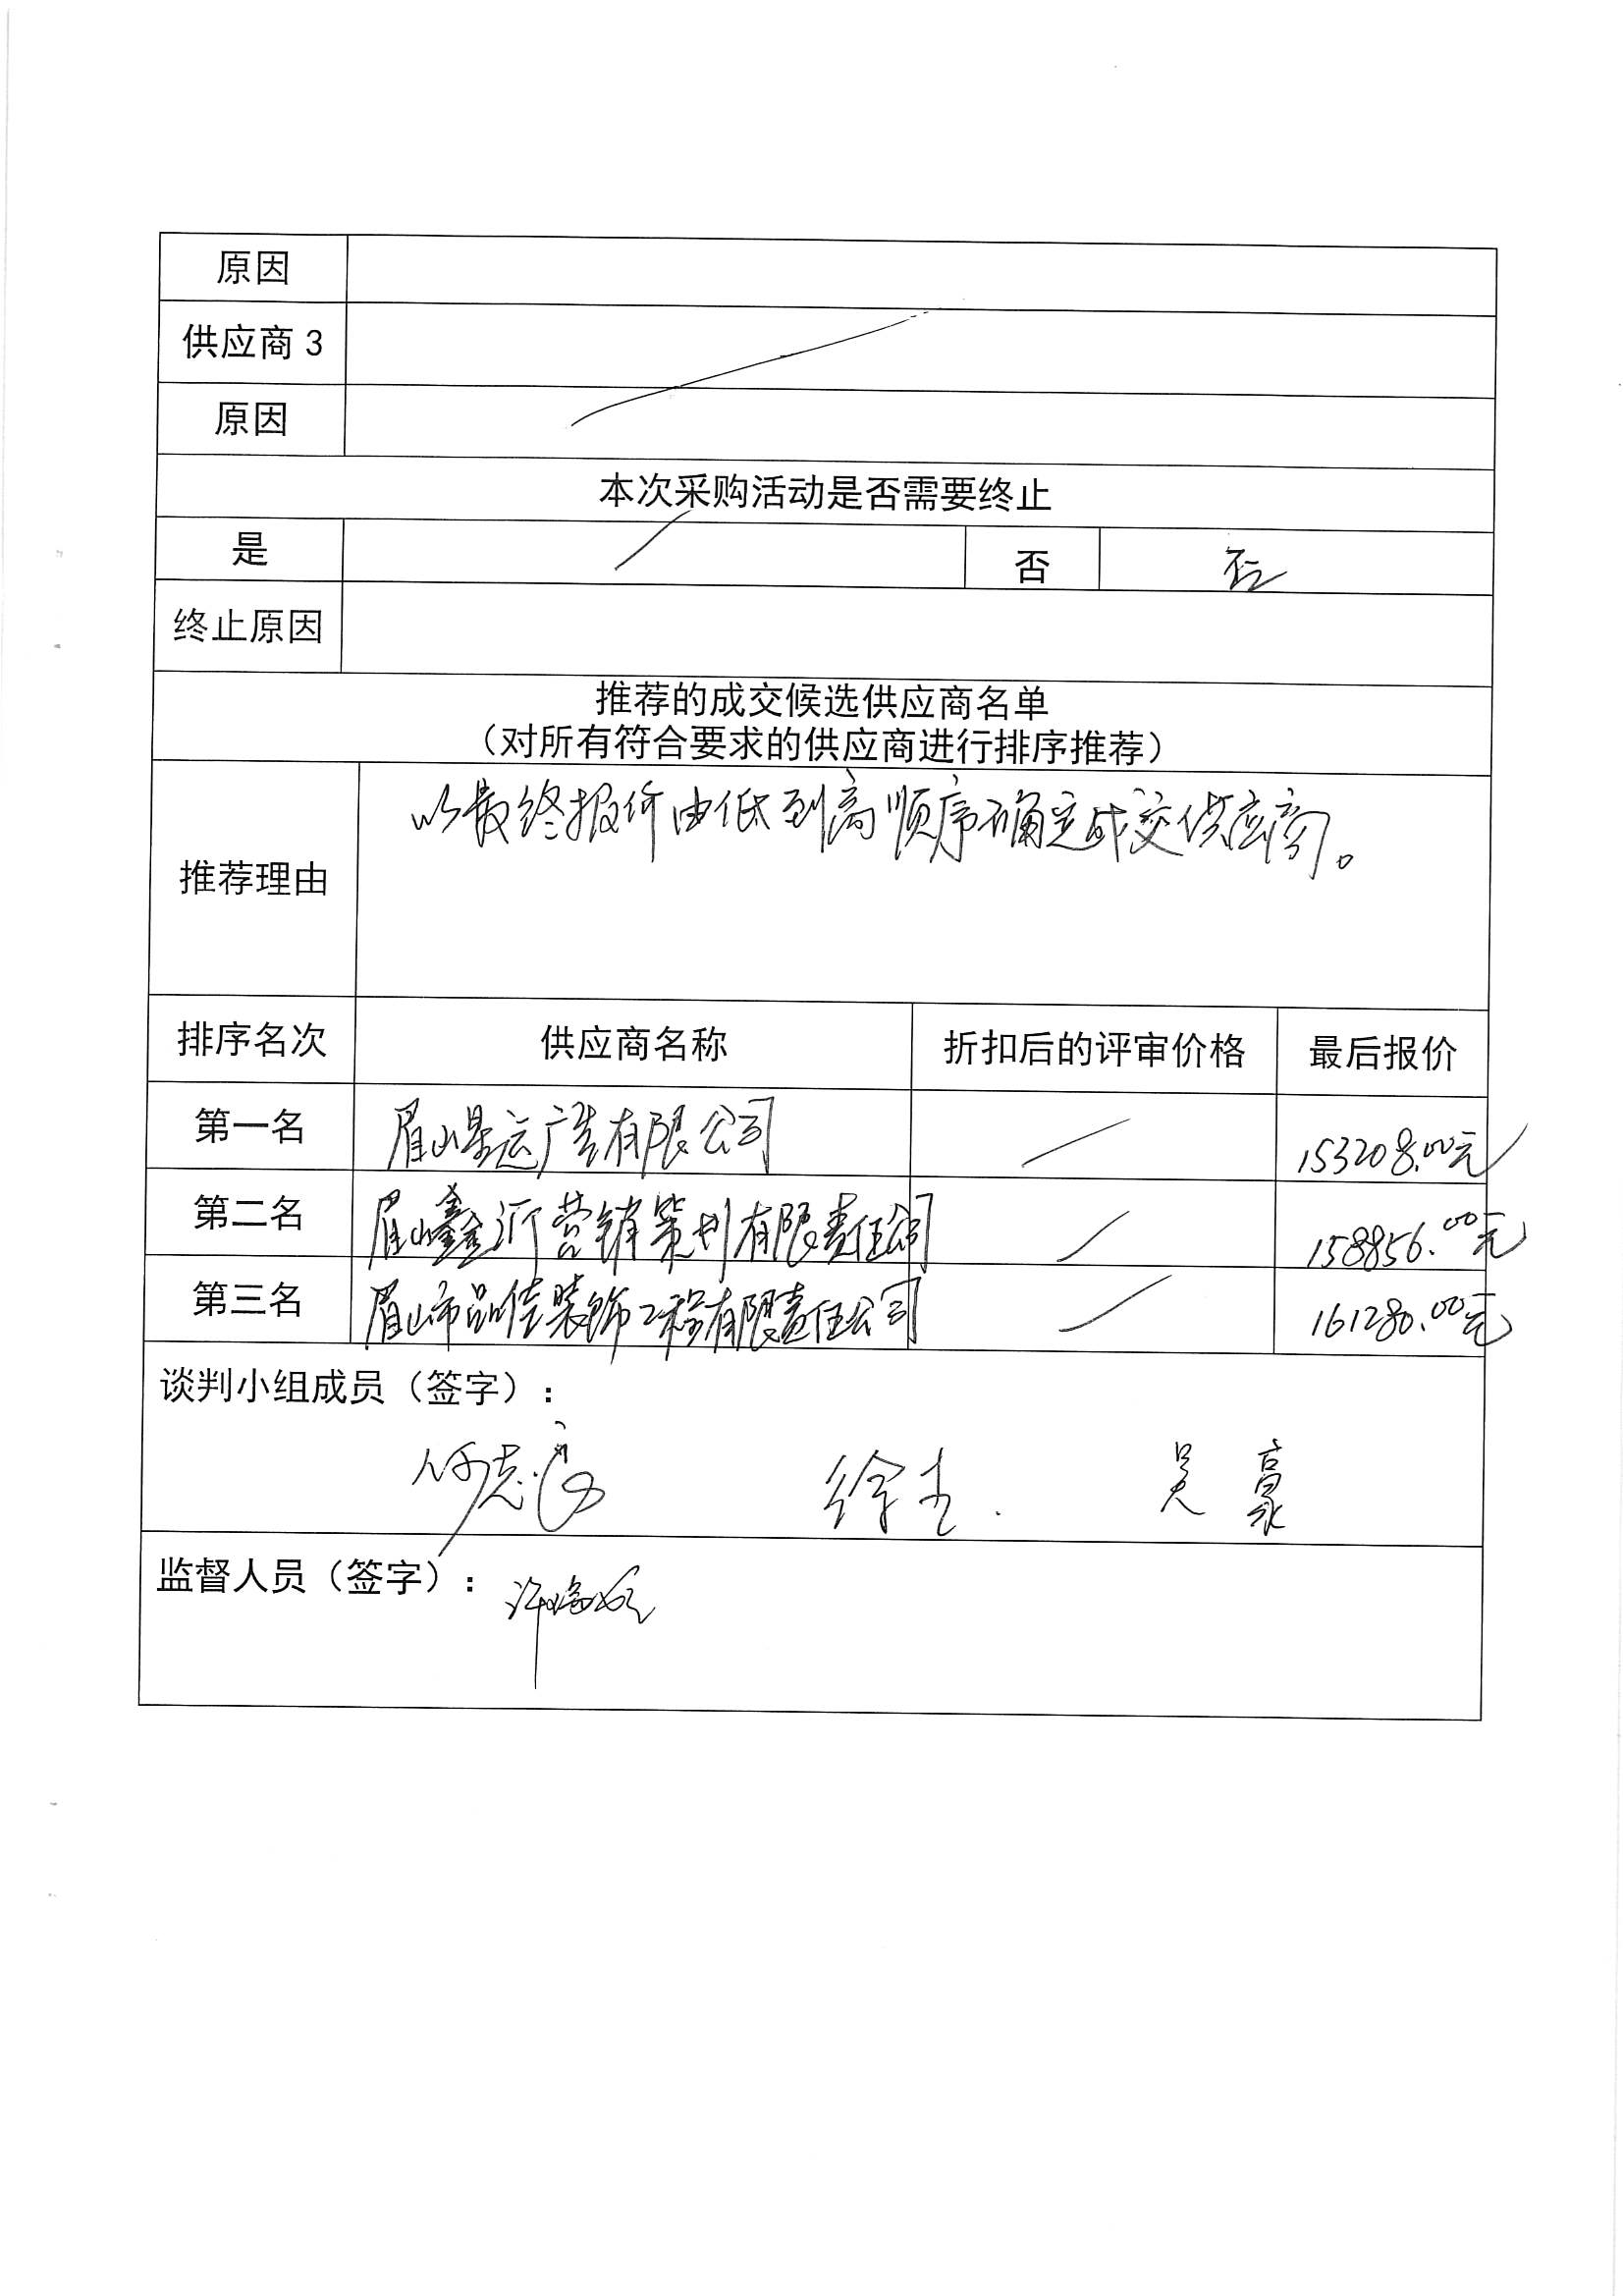 原因
供应商3
原因
本次采购活动是否需要终止
是 / 否 否
终止原因
推荐的成交候选供应商名单
（对所有符合要求的供应商进行排序推荐）
推荐理由 以最终报价由低到高顺序确定成交供应商。
排序名次 供应商名称 折扣后的评审价格 最后报价
第一名 眉山星运广告有限公司 / 153208.00元
第二名 眉山鑫汇营销策划有限责任公司 / 158856.00元
第三名 眉山市品佳装饰工程有限责任公司 / 161280.00元
谈判小组成员（签字）：
何志 徐 吴豪
监督人员（签字）： 许